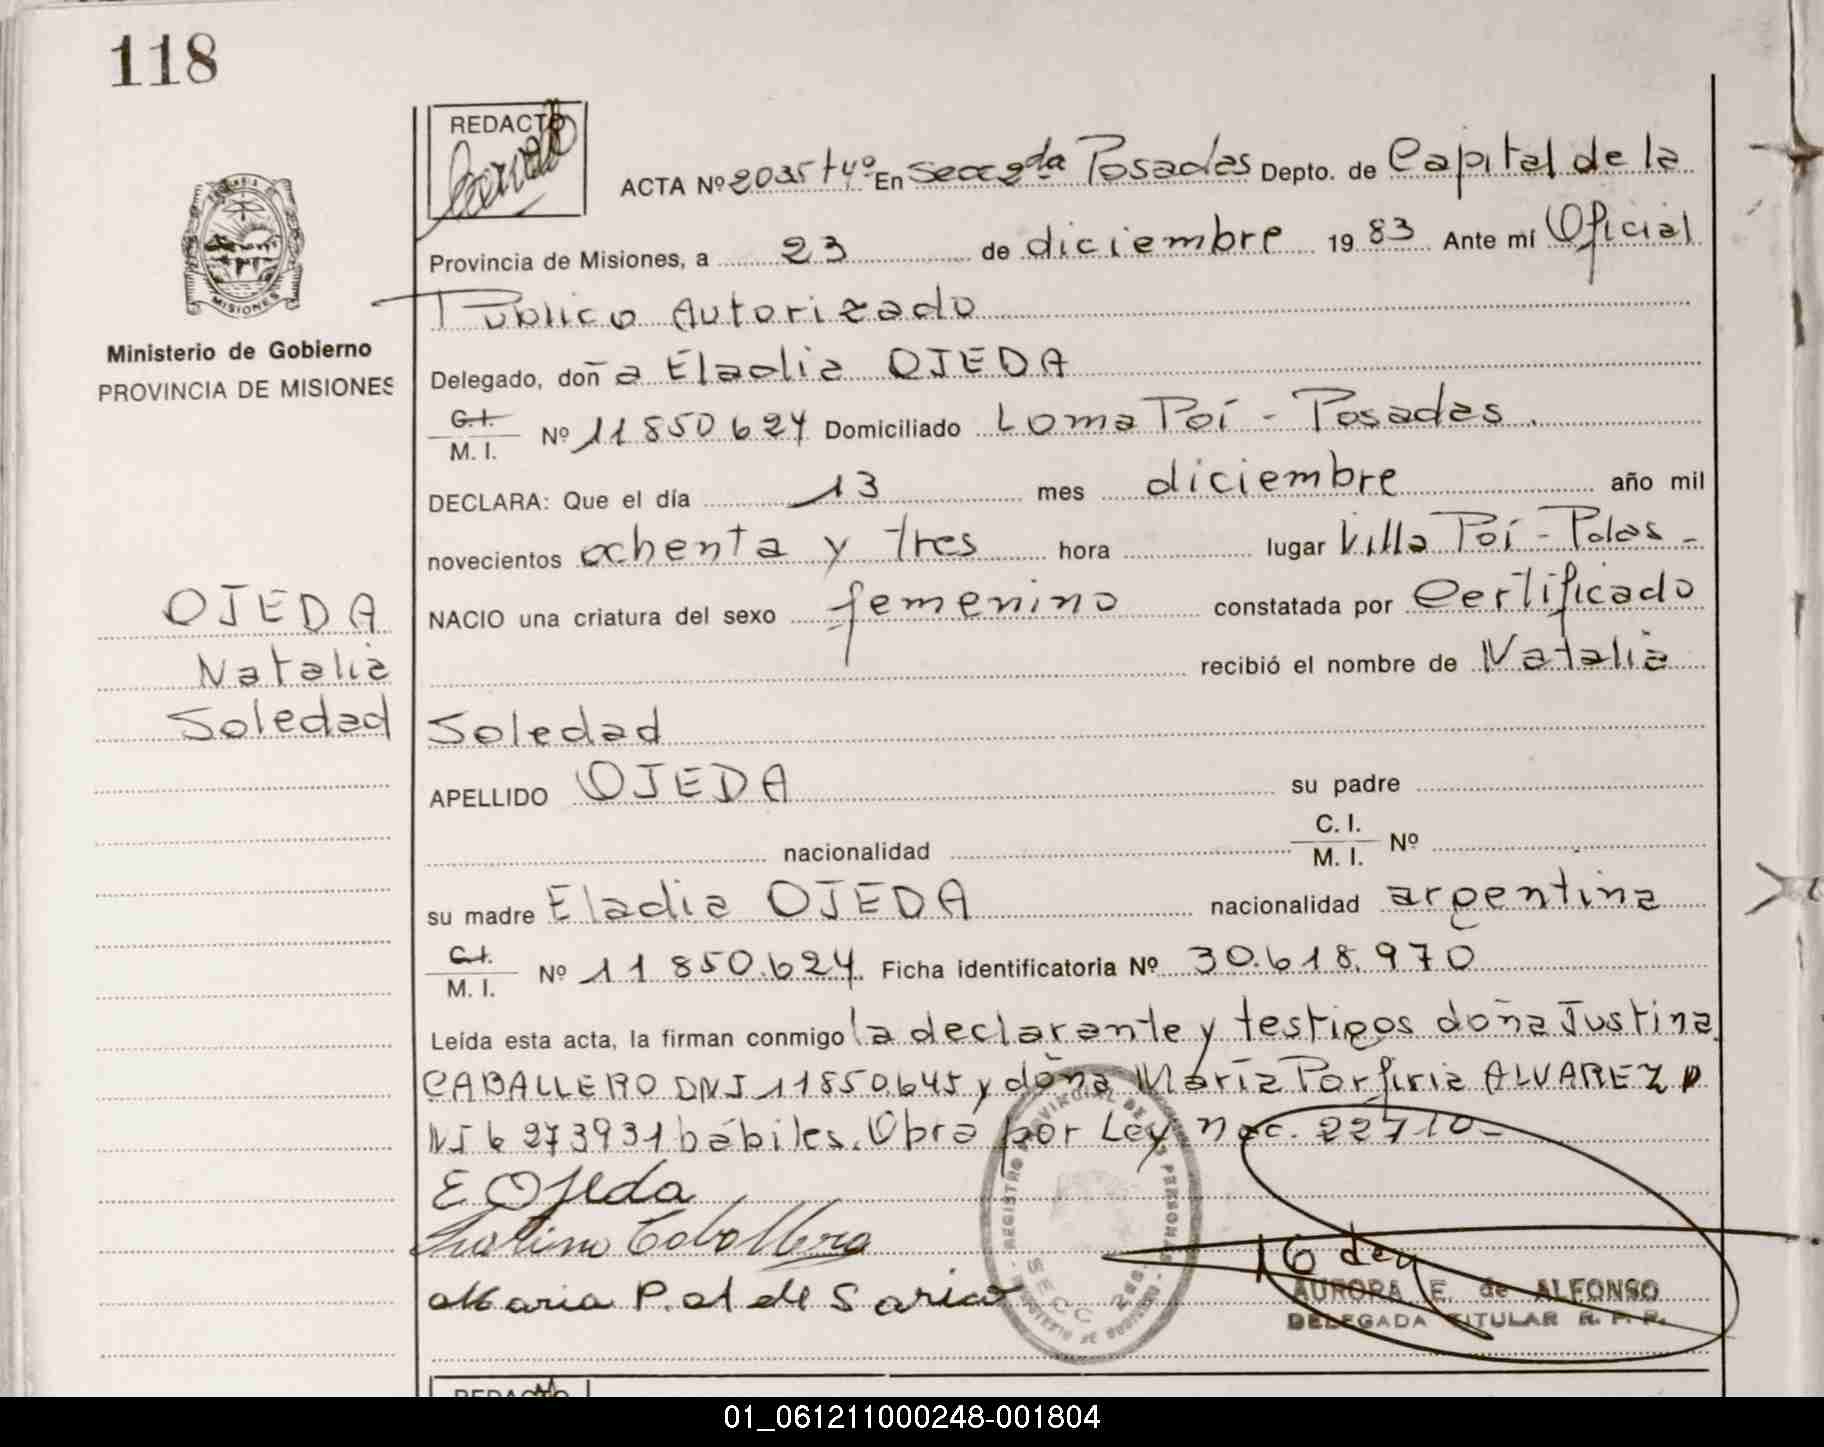 118
REDACTO
ACTA Nº 2035 t4º En Secc 2da Posadas Depto. de Capital de la
MISIONES
Provincia de Misiones, a 23 de diciembre 19 83 Ante mí Oficial
Publico Autorizado
Ministerio de Gobierno
PROVINCIA DE MISIONES
Delegado, doñ a Eladia OJEDA
C.I.
M. I. Nº 11850624 Domiciliado Loma Poí - Posadas
DECLARA: Que el día 13 mes diciembre año mil
novecientos ochenta y tres hora lugar Villa Poí - Pdas -
NACIO una criatura del sexo femenino constatada por Certificado
recibió el nombre de Natalia
Soledad
OJEDA
Natalia
Soledad
APELLIDO OJEDA su padre
nacionalidad C. I.
M. I. Nº
su madre Eladia OJEDA nacionalidad argentina
C.I.
M. I. Nº 11 850.624 Ficha identificatoria Nº 30.618.970
Leída esta acta, la firman conmigo la declarante y testigos doña Justina
CABALLERO DNI 11850.645 y doña María Porfiria ALVAREZ D
NI 6273931 hábiles. Obra por Ley nac. 22710-
E Ojeda
Justina Caballero
Maria P. A de
REGISTRO PROVINCIAL DE LAS PERSONAS
SECC 2da.
MINISTERIO DE GOBIERNO
AURORA E. de ALFONSO
DELEGADA TITULAR R. P. P.
REDACTO
01_061211000248-001804